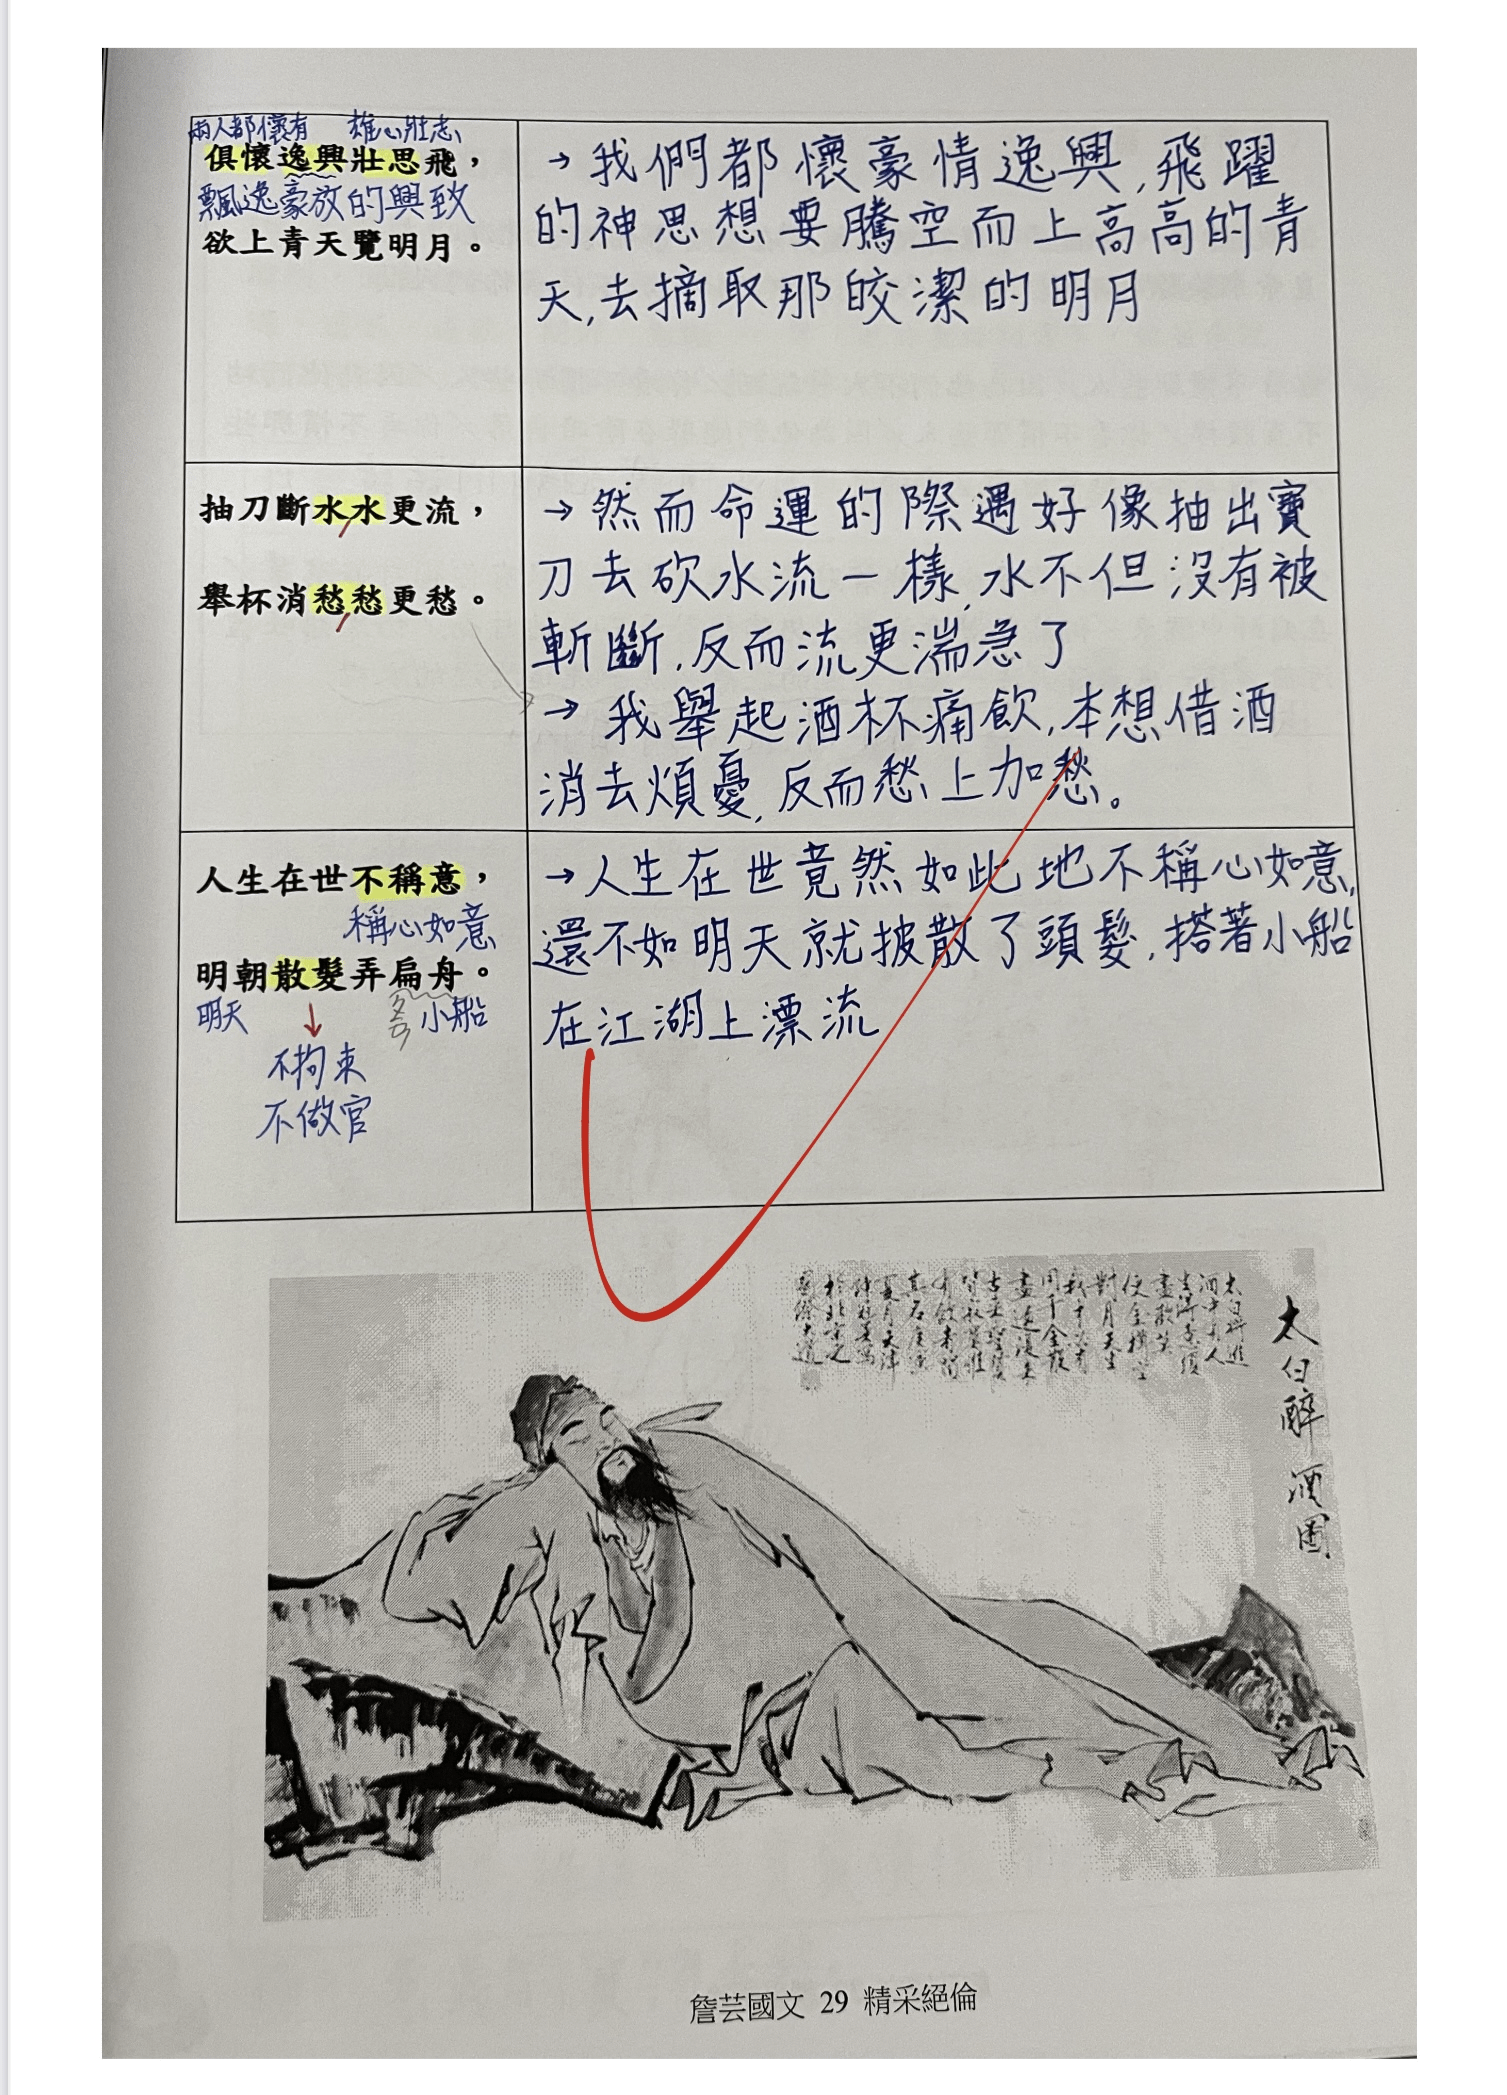 兩人都懷有 雄心壯志
俱懷逸興壯思飛，
飄逸豪放的興致
欲上青天覽明月。
→我們都懷豪情逸興,飛躍
的神思想要騰空而上高高的青
天,去摘取那皎潔的明月
抽刀斷水水更流，
舉杯消愁愁更愁。
→然而命運的際遇好像抽出寶
刀去砍水流一樣,水不但沒有被
斬斷,反而流更湍急了
→我舉起酒杯痛飲,本想借酒
消去煩憂,反而愁上加愁。
人生在世不稱意，
稱心如意
明朝散髮弄扁舟。
明天 ↓ 小船
不拘束
不做官
→人生在世竟然如此地不稱心如意,
還不如明天就披散了頭髮,搭著小船
在江湖上漂流
太白醉酒圖
詹芸國文 29 精采絕倫